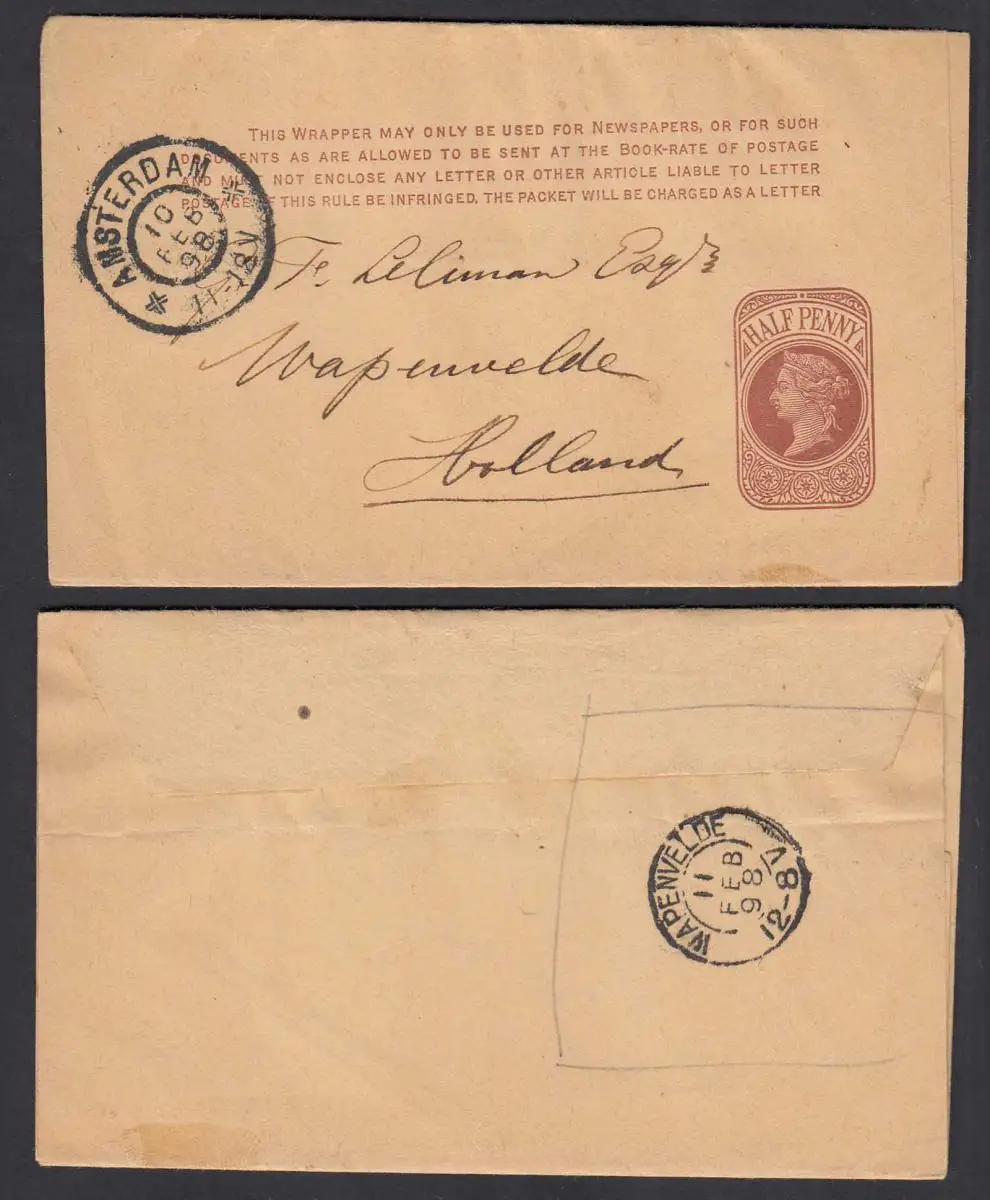 THIS WRAPPER MAY ONLY BE USED FOR NEWSPAPERS, OR FOR SUCH
DOCUMENTS AS ARE ALLOWED TO BE SENT AT THE BOOK-RATE OF POSTAGE
AND MUST NOT ENCLOSE ANY LETTER OR OTHER ARTICLE LIABLE TO LETTER
POSTAGE. IF THIS RULE BE INFRINGED, THE PACKET WILL BE CHARGED AS A LETTER
AMSTERDAM
10
FEB
98
Leliman Esqr
Wapenvelde
Holland
HALF PENNY
WAPENVELDE
11
FEB
98
12-8 V